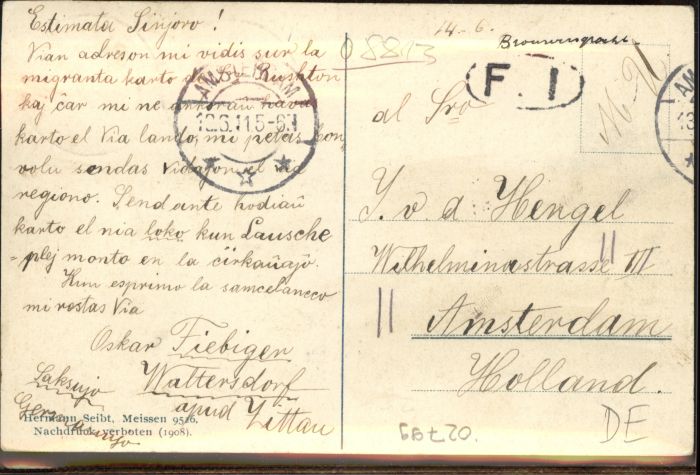 Estimata Sinjoro!
Vian adreson mi vidis sur la
migranta karto de Rushton
kaj ĉar mi ne ankoraŭ havas
karto el Via lando, mi petas, bon-
volu sendas vidaĵon el via
regiono. Sendante hodiaŭ
karto el nia loko kun Lausche
plej monto en la ĉirkaŭaĵo.
Kun esprimo la samcelaneco
mi restas Via
Oskar Fiebiger
Waltersdorf
apud Zittau
Saksujo
Germanujo
Hermann Seibt, Meissen 9526.
Nachdruck verboten (1908).
14-6.
08813
Brouwersgracht
F. I
AMSTERDAM
13.6.11.5-6N
AM
al Sro
J. v. d. Hengel
Wilhelminastrasse III
Amsterdam
Holland.
DE
69720